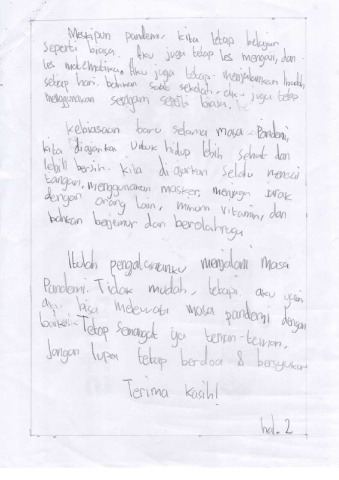 Meskipun pandemi, kita tetap belajar
seperti biasa. Aku juga tetap les mengaji, dan
les matematika. Aku juga tetap menjalankan ibadah,
setiap hari. bahkan saat sekolah, aku juga tetap
menggunakan seragam seperti biasa.
Kebiasaan baru selama masa Pandemi,
kita diajarkan untuk hidup lebih sehat dan
lebih bersih. kita diajarkan selalu mencuci
tangan, menggunakan masker, menjaga jarak
dengan orang lain, minum vitamin, dan
bahkan berjemur dan berolahraga
Itulah pengalamanku menjalani masa
Pandemi. Tidak mudah, tetapi aku yakin
aku bisa melewati masa pandemi dengan
baik. Tetap Semangat ya teman-teman,
Jangan lupa tetap berdoa & bersyukur
Terima kasih!
hal. 2